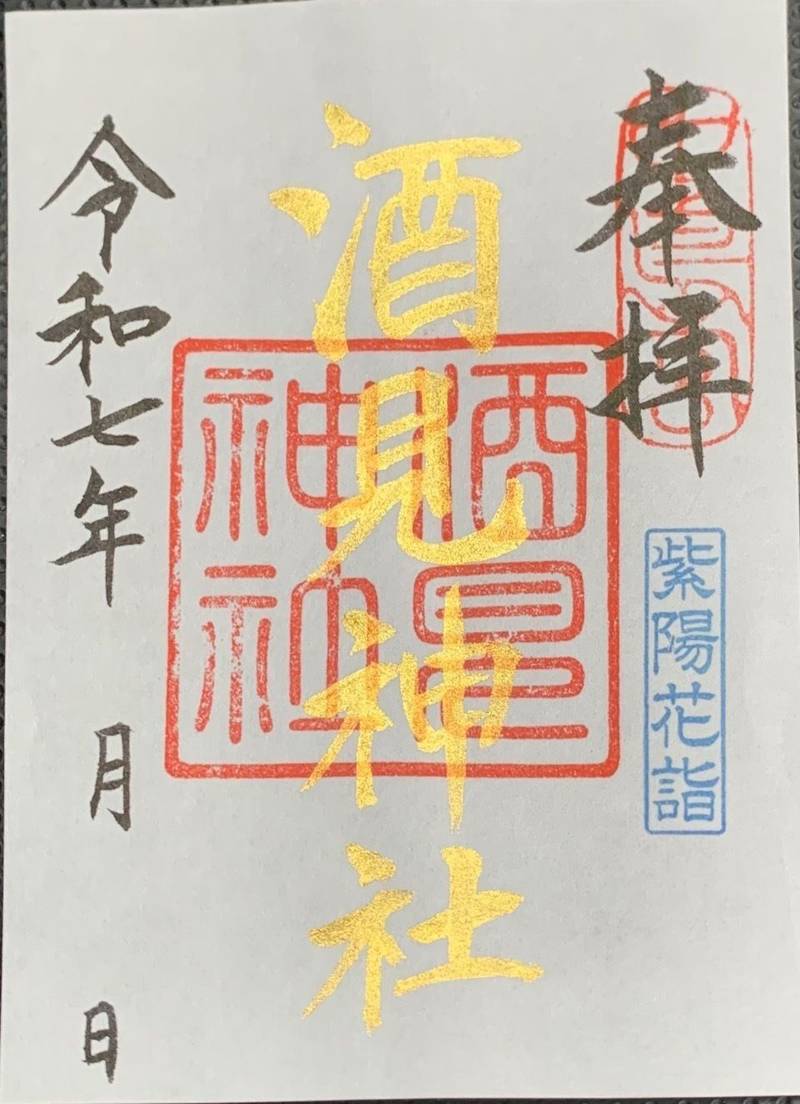 奉拝
紫陽花詣
酒見神社
酒見神社
令和七年 月 日